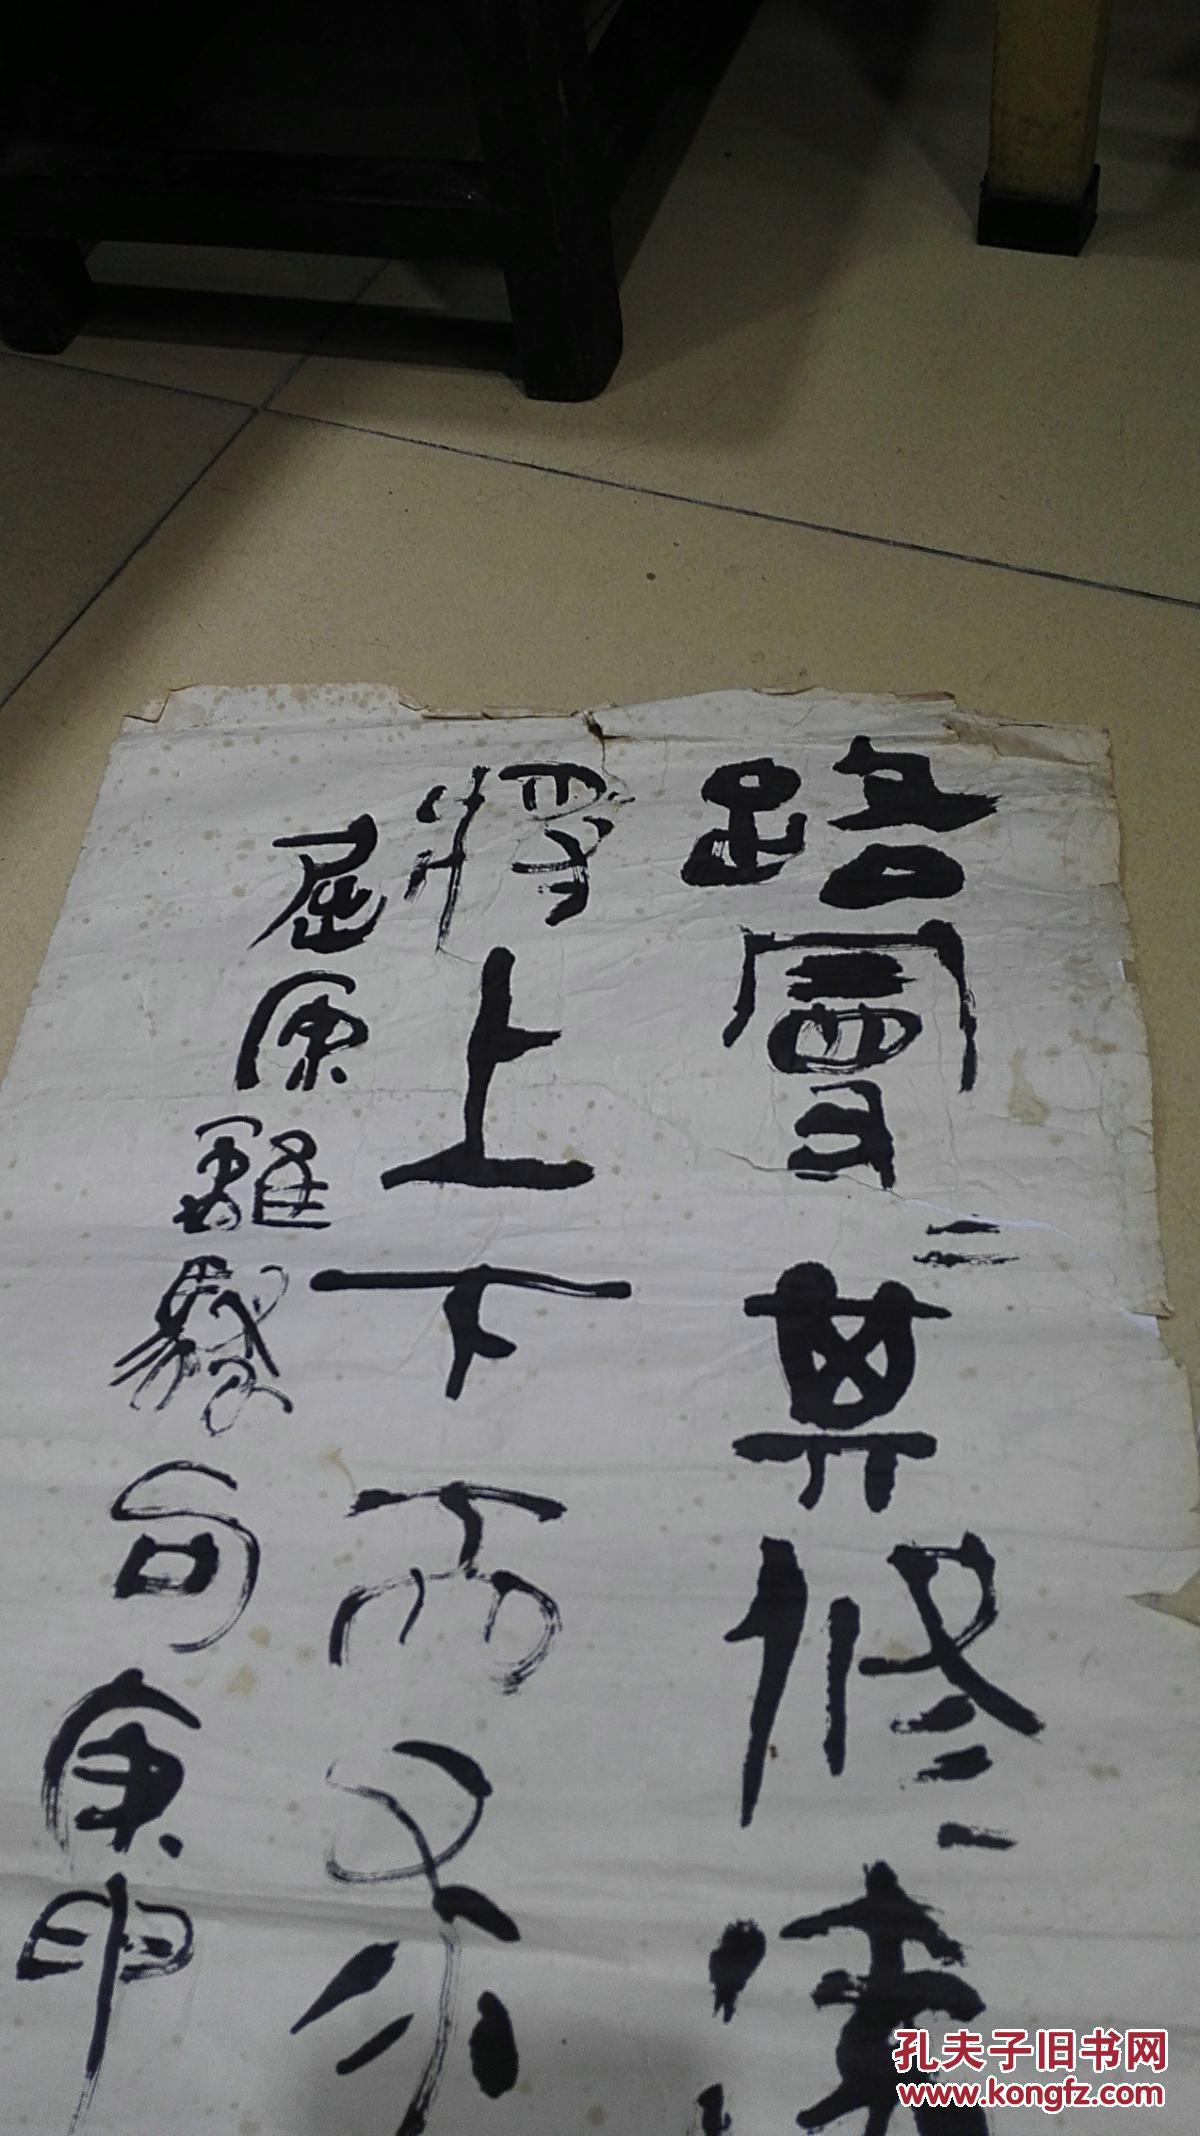 路曼〻其修遠
將上下而求
屈原離騷句庚申
孔夫子旧书网
www.kongfz.com